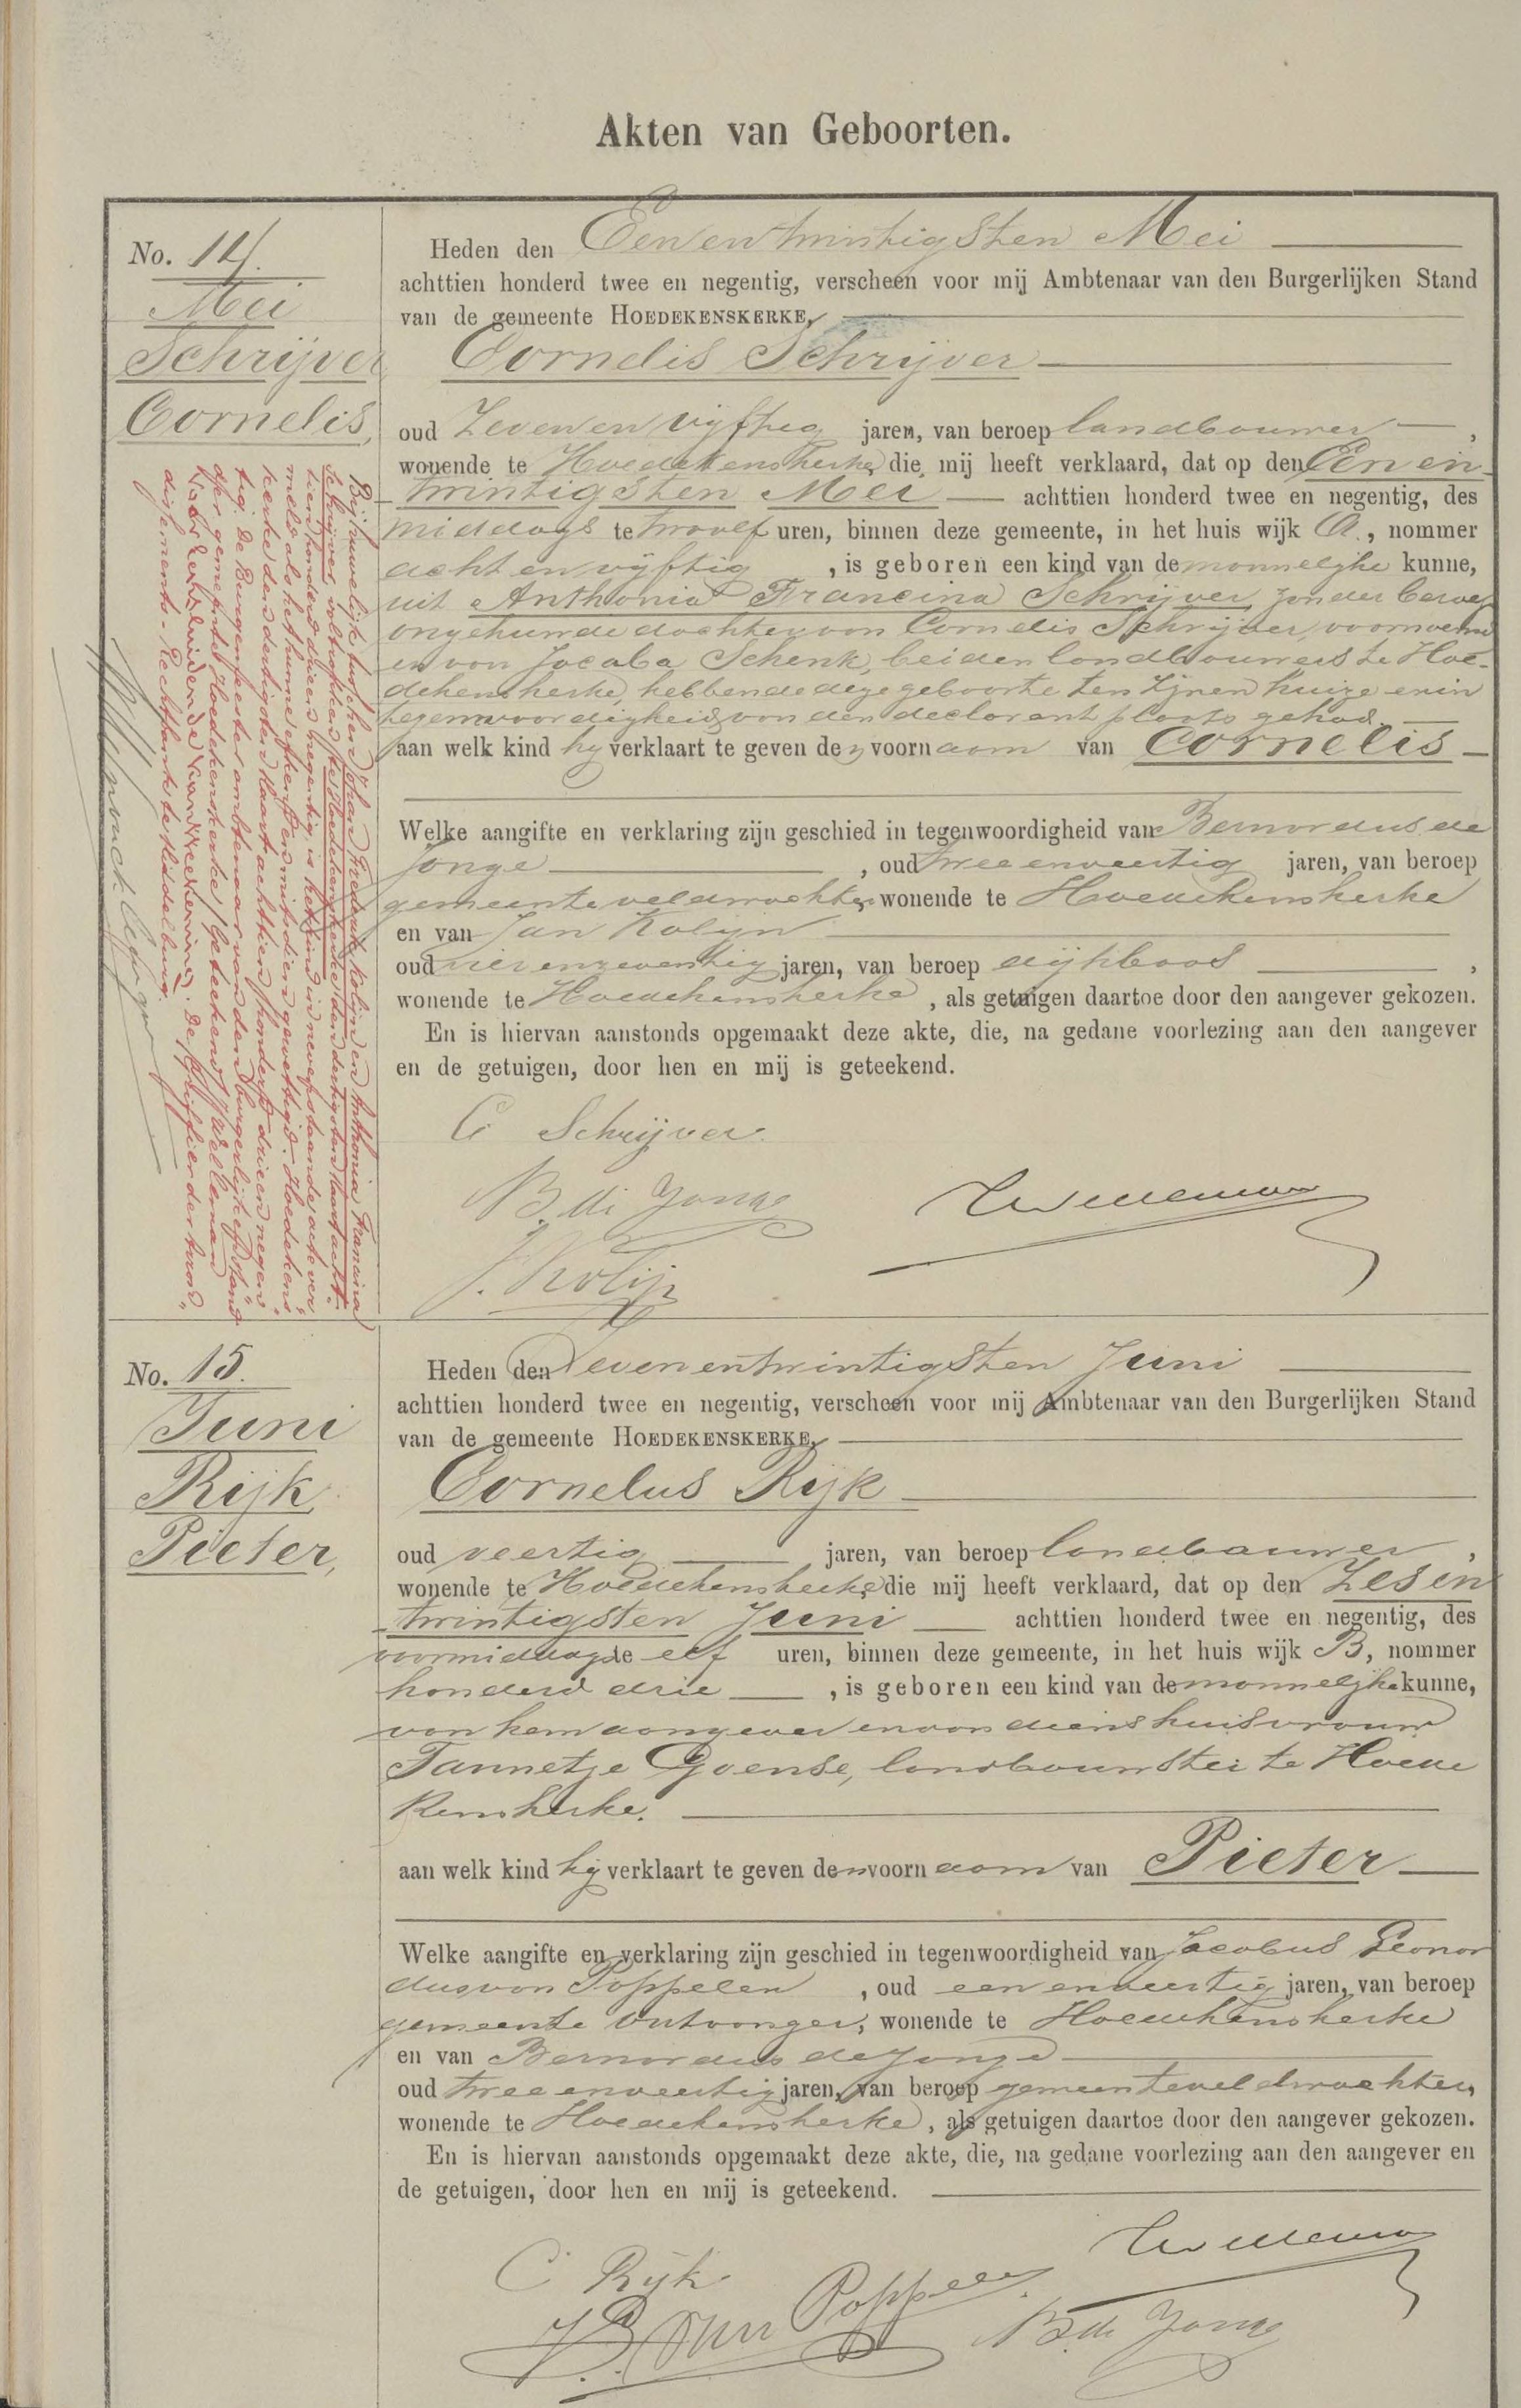 Akten van Geboorten.
No. 14.
Mei
Schrijver
Cornelis,
Heden den Eenentwintigsten Mei
achttien honderd twee en negentig, verscheen voor mij Ambtenaar van den Burgerlijken Stand
van de gemeente HOEDEKENSKERKE,
Cornelis Schrijver
oud Zevenenvijftig jaren, van beroep landbouwer,
wonende te Hoedekenskerke, die mij heeft verklaard, dat op den Een en
twintigsten Mei achttien honderd twee en negentig, des
middags te twaalf uren, binnen deze gemeente, in het huis wijk A., nommer
acht en vijftig, is geboren een kind van de mannelijke kunne,
uit Anthonia Francina Schrijver, zonder beroep
ongehuwde dochter van Cornelis Schrijver, voornoemd
en van Jacoba Schenk, beiden landbouwers te Hoe-
dekenskerke, hebbende deze geboorte ten zijnen huize en in
tegenwoordigheid van den declarant plaats gehad.
aan welk kind hij verklaart te geven den voornaam van Cornelis
Welke aangifte en verklaring zijn geschied in tegenwoordigheid van Bernardus de
Jonge, oud twee en veertig jaren, van beroep
gemeenteveldwachter, wonende te Hoedekenskerke
en van Jan Kolijn
oud vier en zeventig jaren, van beroep dijkbaas,
wonende te Hoedekenskerke, als getuigen daartoe door den aangever gekozen.
En is hiervan aanstonds opgemaakt deze akte, die, na gedane voorlezing aan den aangever
en de getuigen, door hen en mij is geteekend.
C Schrijver.
B. de Jonge
J. Kolijn
Bij huwelijk tusschen Johan Frederik Kolijn en Anthonia Francina
Schrijver voltrokken te Hoedekenskerke den dertigsten Maart acht-
tien honderd drie en negentig, is het kind in nevenstaande acte ver
meld als het hunne erkend en mitsdien gewettigd. Hoedekens-
kerke den dertigsten Maart achttien honderd drie en negen-
tig. De Burgemeester ambtenaar van den burgerlijken stand
der gemeente Hoedekenskerke, (geteekend) Welleman
Voor eensluidende aanteekening. De Griffier der Arron-
dissements-Rechtbank te Middelburg.
No. 15.
Juni
Rijk
Pieter,
Heden den Zevenentwintigsten Juni
achttien honderd twee en negentig, verscheen voor mij Ambtenaar van den Burgerlijken Stand
van de gemeente HOEDEKENSKERKE,
Cornelus Rijk
oud veertig jaren, van beroep landbouwer,
wonende te Hoedekenskerke, die mij heeft verklaard, dat op den Zes en
twintigsten Juni achttien honderd twee en negentig, des
voormiddags te elf uren, binnen deze gemeente, in het huis wijk B, nommer
honderd drie, is geboren een kind van de mannelijke kunne,
van hem aangever en van diens huisvrouw
Tannetje Goense, landbouwster te Hoede
kenskerke.
aan welk kind hij verklaart te geven den voornaam van Pieter
Welke aangifte en verklaring zijn geschied in tegenwoordigheid van Jacobus Leonar
dus van Poppelen, oud een en veertig jaren, van beroep
gemeente ontvanger, wonende te Hoedekenskerke
en van Bernardus de Jonge
oud twee en veertig jaren, van beroep gemeenteveldwachter,
wonende te Hoedekenskerke, als getuigen daartoe door den aangever gekozen.
En is hiervan aanstonds opgemaakt deze akte, die, na gedane voorlezing aan den aangever en
de getuigen, door hen en mij is geteekend.
C Rijk
Welleman
J. L. van Poppelen
B. de Jonge